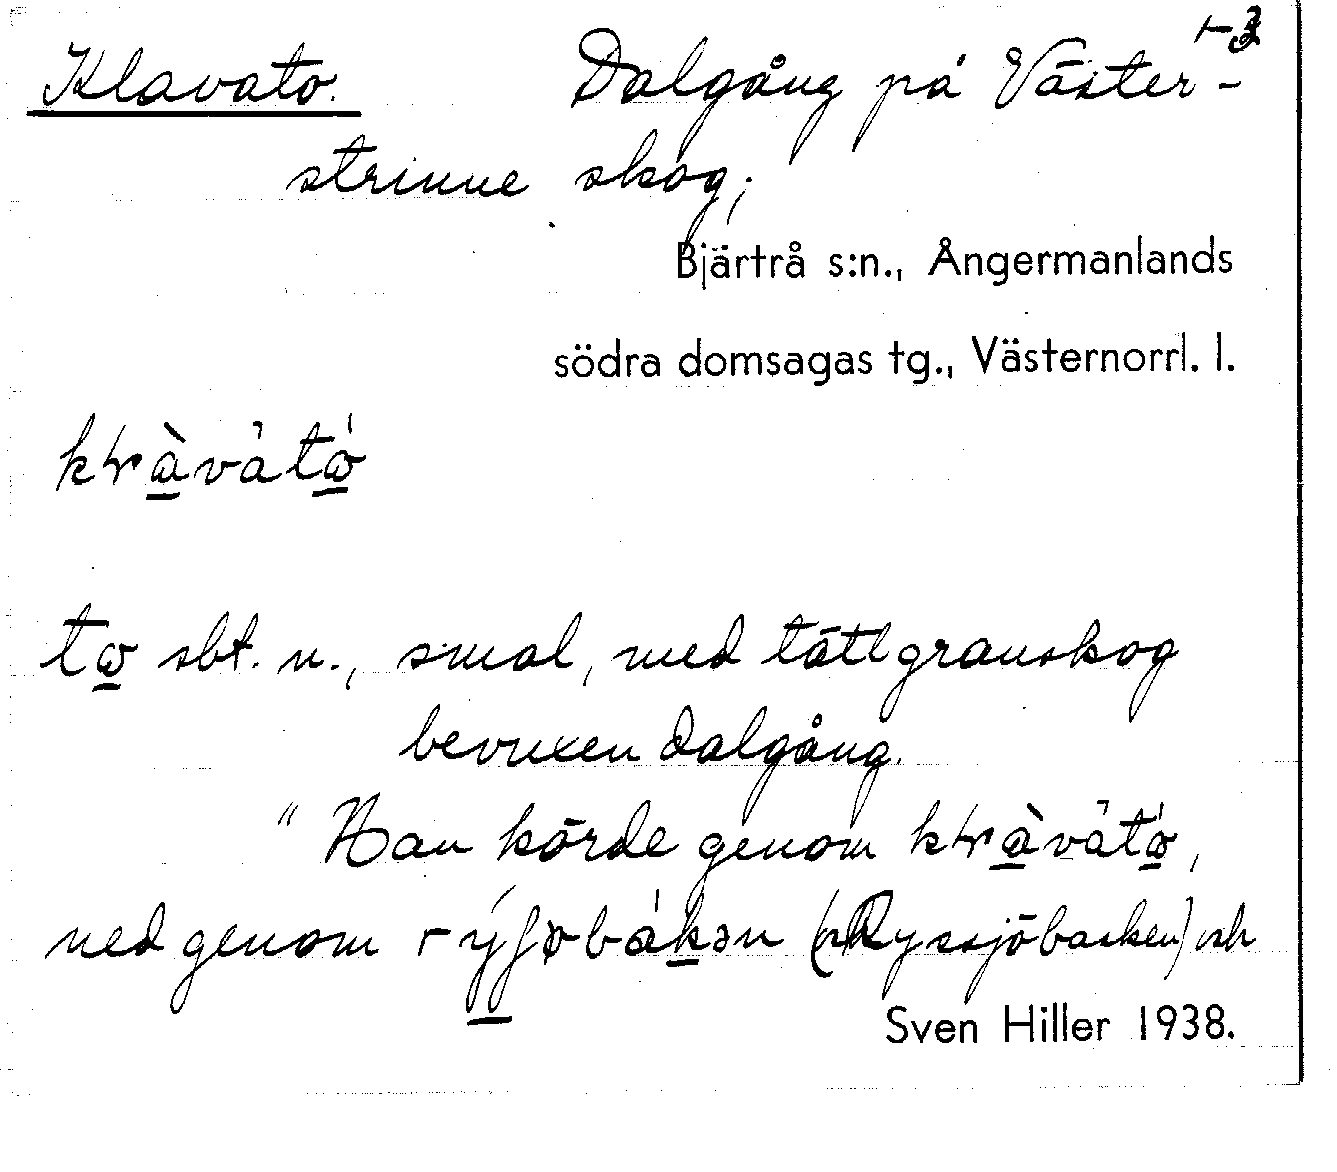 1-3
Klavato. Dalgång på Väster-
strinne skog;
Bjärtrå s:n., Ångermanlands
södra domsagas tg., Västernorrl. l.
to sbt. n., smal, med tät granskog
bevuxen dalgång.
"Han körde genom
ned genom (Ryssjöbacken) och
Sven Hiller 1938.